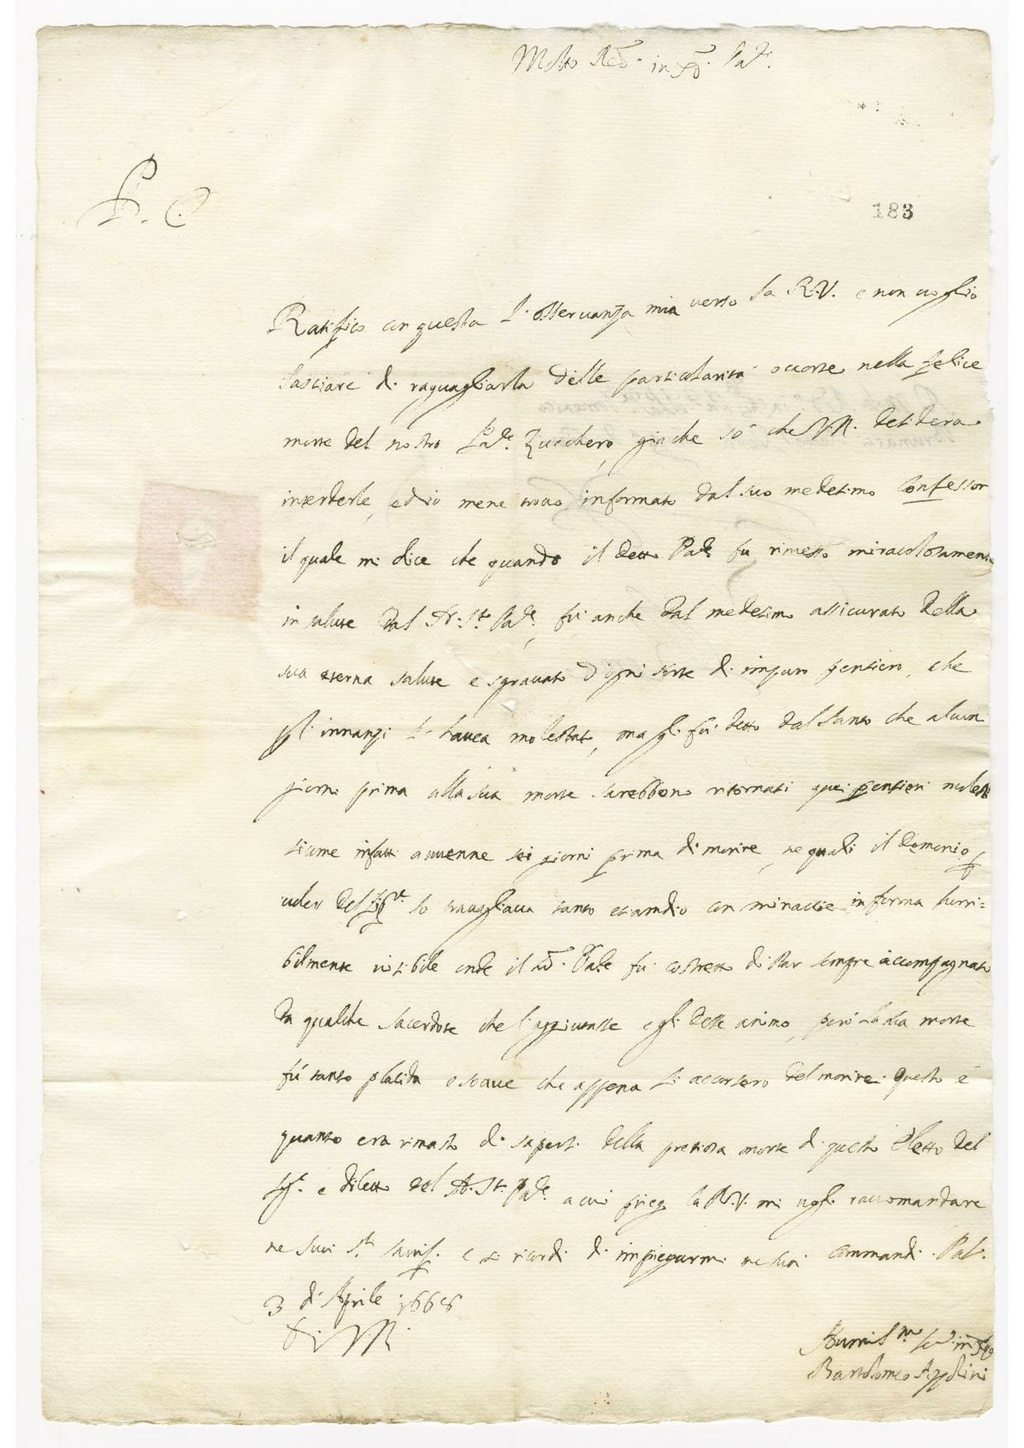 Molto Red. in Xo. Pad.
P. C.
183
Ratifico con questa l'osservanza mia verso la R.V. e non voglio
lasciare di raguagliarla delle particolarità occorse nella felice
morte del nostro Pad.e Zucchero, già che so che V.R. desidera
intenderle, ed io mene trovo informato dal suo medesimo Confessor
il quale mi dice che quando il detto Pad.e fu rimesso miracolosamente
in salute dal N. St. Pad.e, fù anche dal medesimo assicurato della
sua eterna salute e sgravato d'ogni sorte di impuro pensiero, che
per innanzi l'havea molestato, ma gli fù detto dal santo che alcun
giorni prima alla sua morte sarebbono ritornati quei pensieri molesti
si come infatti avvenne sei giorni prima di morire, ne quali il demonio
voler del Sig.re lo travagliava tanto etiamdio con minaccie in forma horri=
bilmente visibile onde il Pad.e fù costretto di star sempre accompagnato
da qualche sacerdote che l'aggiutasse e gli desse animo, però la sua morte
fù tanto placida e soave che appena si accorsero del morire. Questo è
quanto era rimasto di sapersi della pretiosa morte di questo eletto del
Sig.r e diletto del N. St. Pad.e a cui priego la R.V. mi vogli raccomandare
ne suoi Sti. sacrif. e si ricordi di impiegarmi ne suoi commandi. Pal.
3 di Aprile 1668
Di V.R.
Humil.mo ser. in Xo
Bartolomeo Appolini